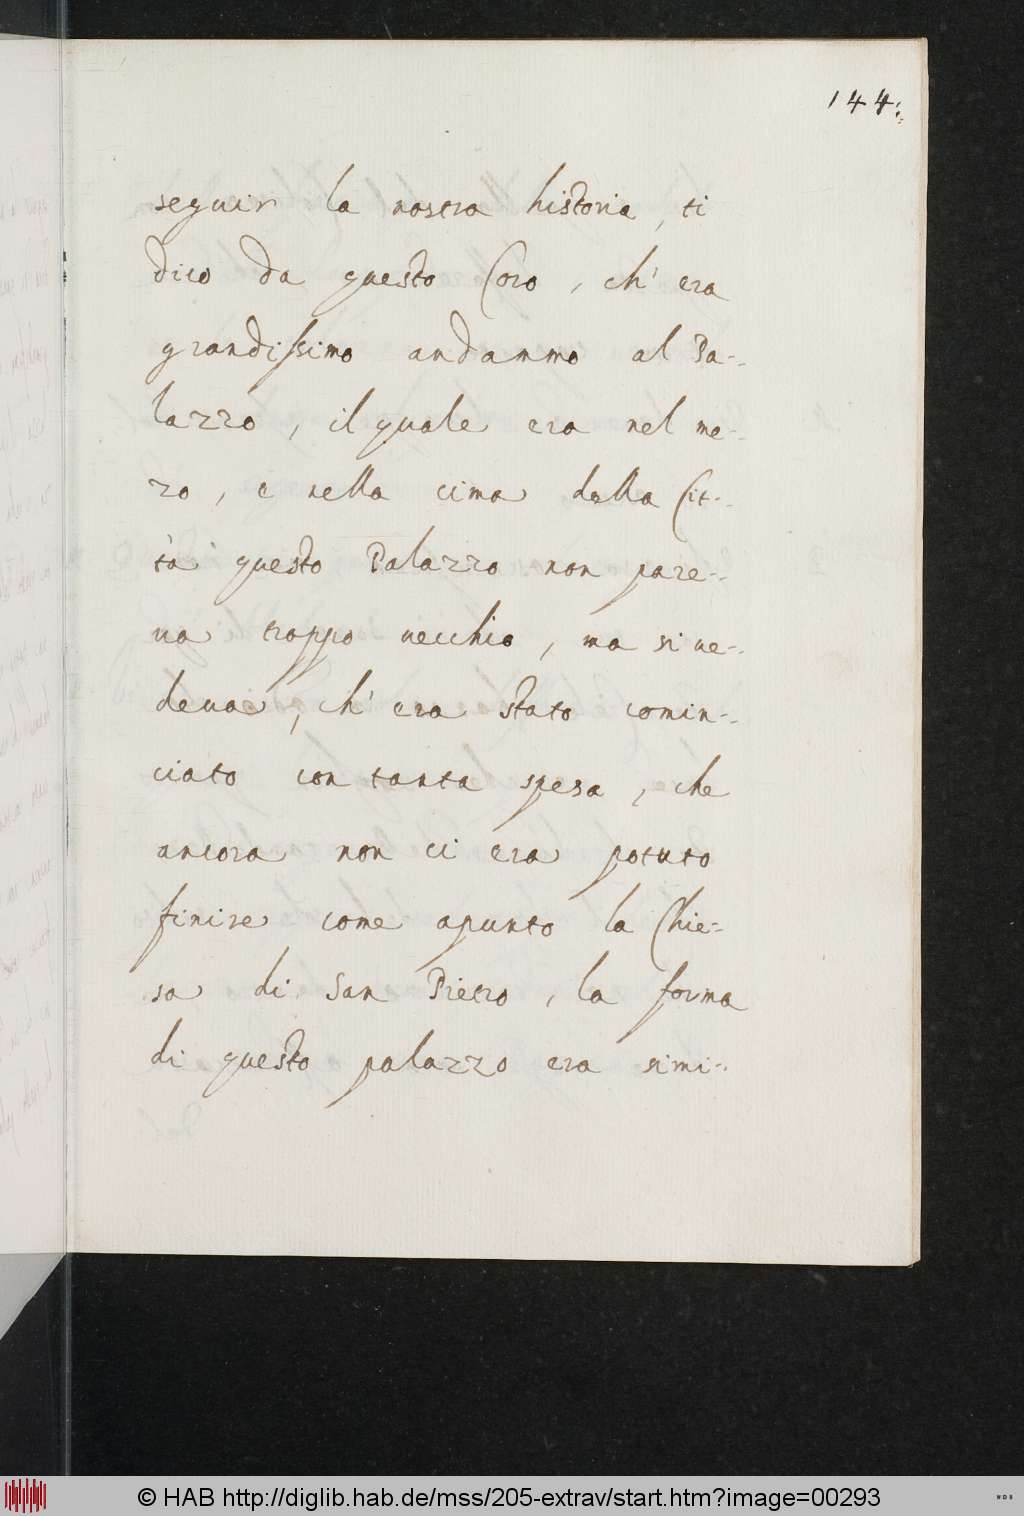 144.
seguir la nostra historia, ti
dico da questo Coro, ch' era
grandissimo andammo al Pa-
lazzo, il quale era nel me-
zo, e nella cima della Cit-
tà questo Palazzo non pare-
ua troppo uecchio, ma si ue-
deua, ch' era stato comin-
ciato con tanta spesa, che
ancora non ci era potuto
finire come apunto la Chie-
sa di San Pietro, la forma
di questo palazzo era simi-
© HAB http://diglib.hab.de/mss/205-extrav/start.htm?image=00293